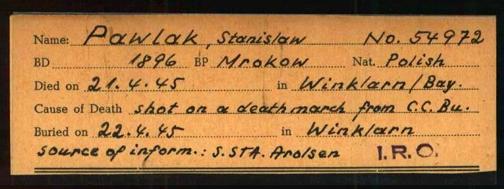 Name: Pawlak, Stanislaw No. 54972
BD 1896 BP Mrokow Nat. Polish
Died on 21.4.45 in Winklarn/Bay.
Cause of Death shot on a deathmarch from C.C. Bu.
Buried on 22.4.45 in Winklarn
source of inform.: S.STA. Arolsen I.R.O.